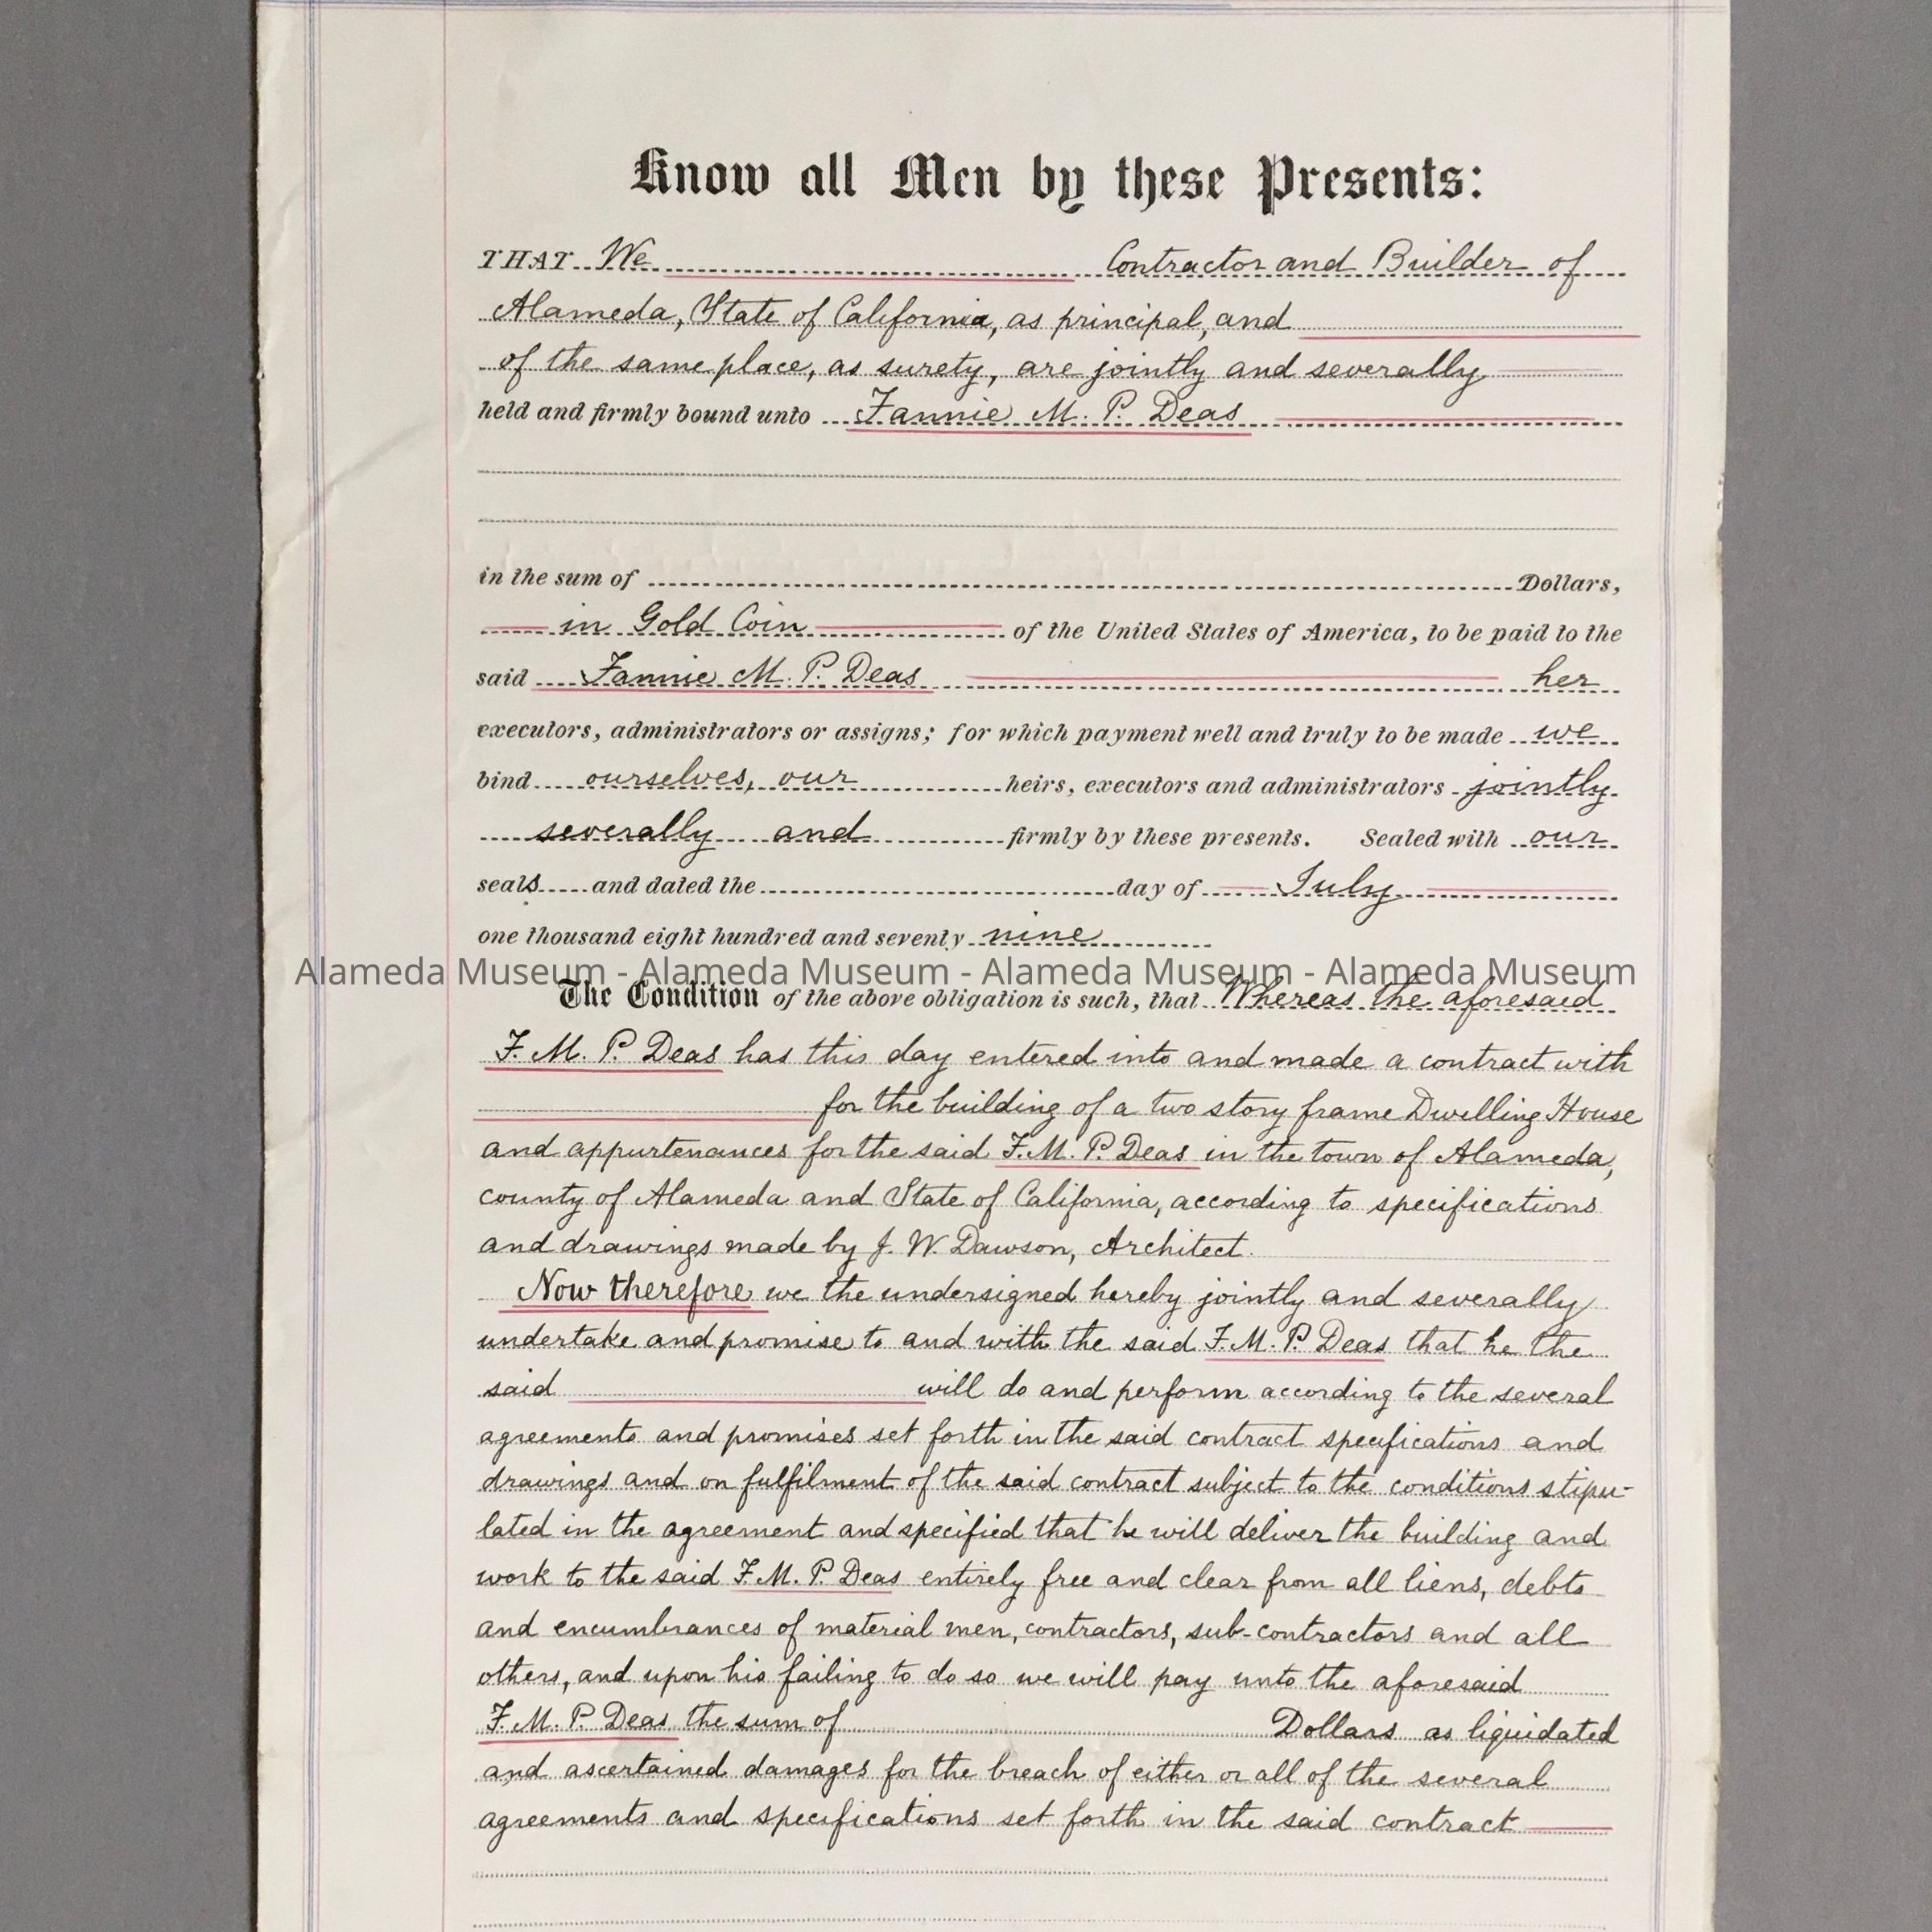 Know all Men by these Presents:
THAT We Contractor and Builder of
Alameda, State of California, as principal, and
of the same place, as surety, are jointly and severally
held and firmly bound unto Fannie M. P. Deas
in the sum of Dollars,
in Gold Coin of the United States of America, to be paid to the
said Fannie M. P. Deas her
executors, administrators or assigns; for which payment well and truly to be made we
bind ourselves, our heirs, executors and administrators jointly
severally and firmly by these presents. Sealed with our
seals and dated the day of July
one thousand eight hundred and seventy nine
Alameda Museum - Alameda Museum - Alameda Museum - Alameda Museum
The Condition of the above obligation is such, that Whereas the aforesaid
F. M. P. Deas has this day entered into and made a contract with
for the building of a two story frame Dwelling House
and appurtenances for the said F. M. P. Deas in the town of Alameda,
county of Alameda and State of California, according to specifications
and drawings made by J. W. Dawson, Architect.
Now therefore we the undersigned hereby jointly and severally
undertake and promise to and with the said F. M. P. Deas that he the
said will do and perform according to the several
agreements and promises set forth in the said contract specifications and
drawings and on fulfilment of the said contract subject to the conditions stipu-
lated in the agreement and specified that he will deliver the building and
work to the said F. M. P. Deas entirely free and clear from all liens, debts
and encumbrances of material men, contractors, sub-contractors and all
others, and upon his failing to do so we will pay unto the aforesaid
F. M. P. Deas the sum of Dollars as liquidated
and ascertained damages for the breach of either or all of the several
agreements and specifications set forth in the said contract